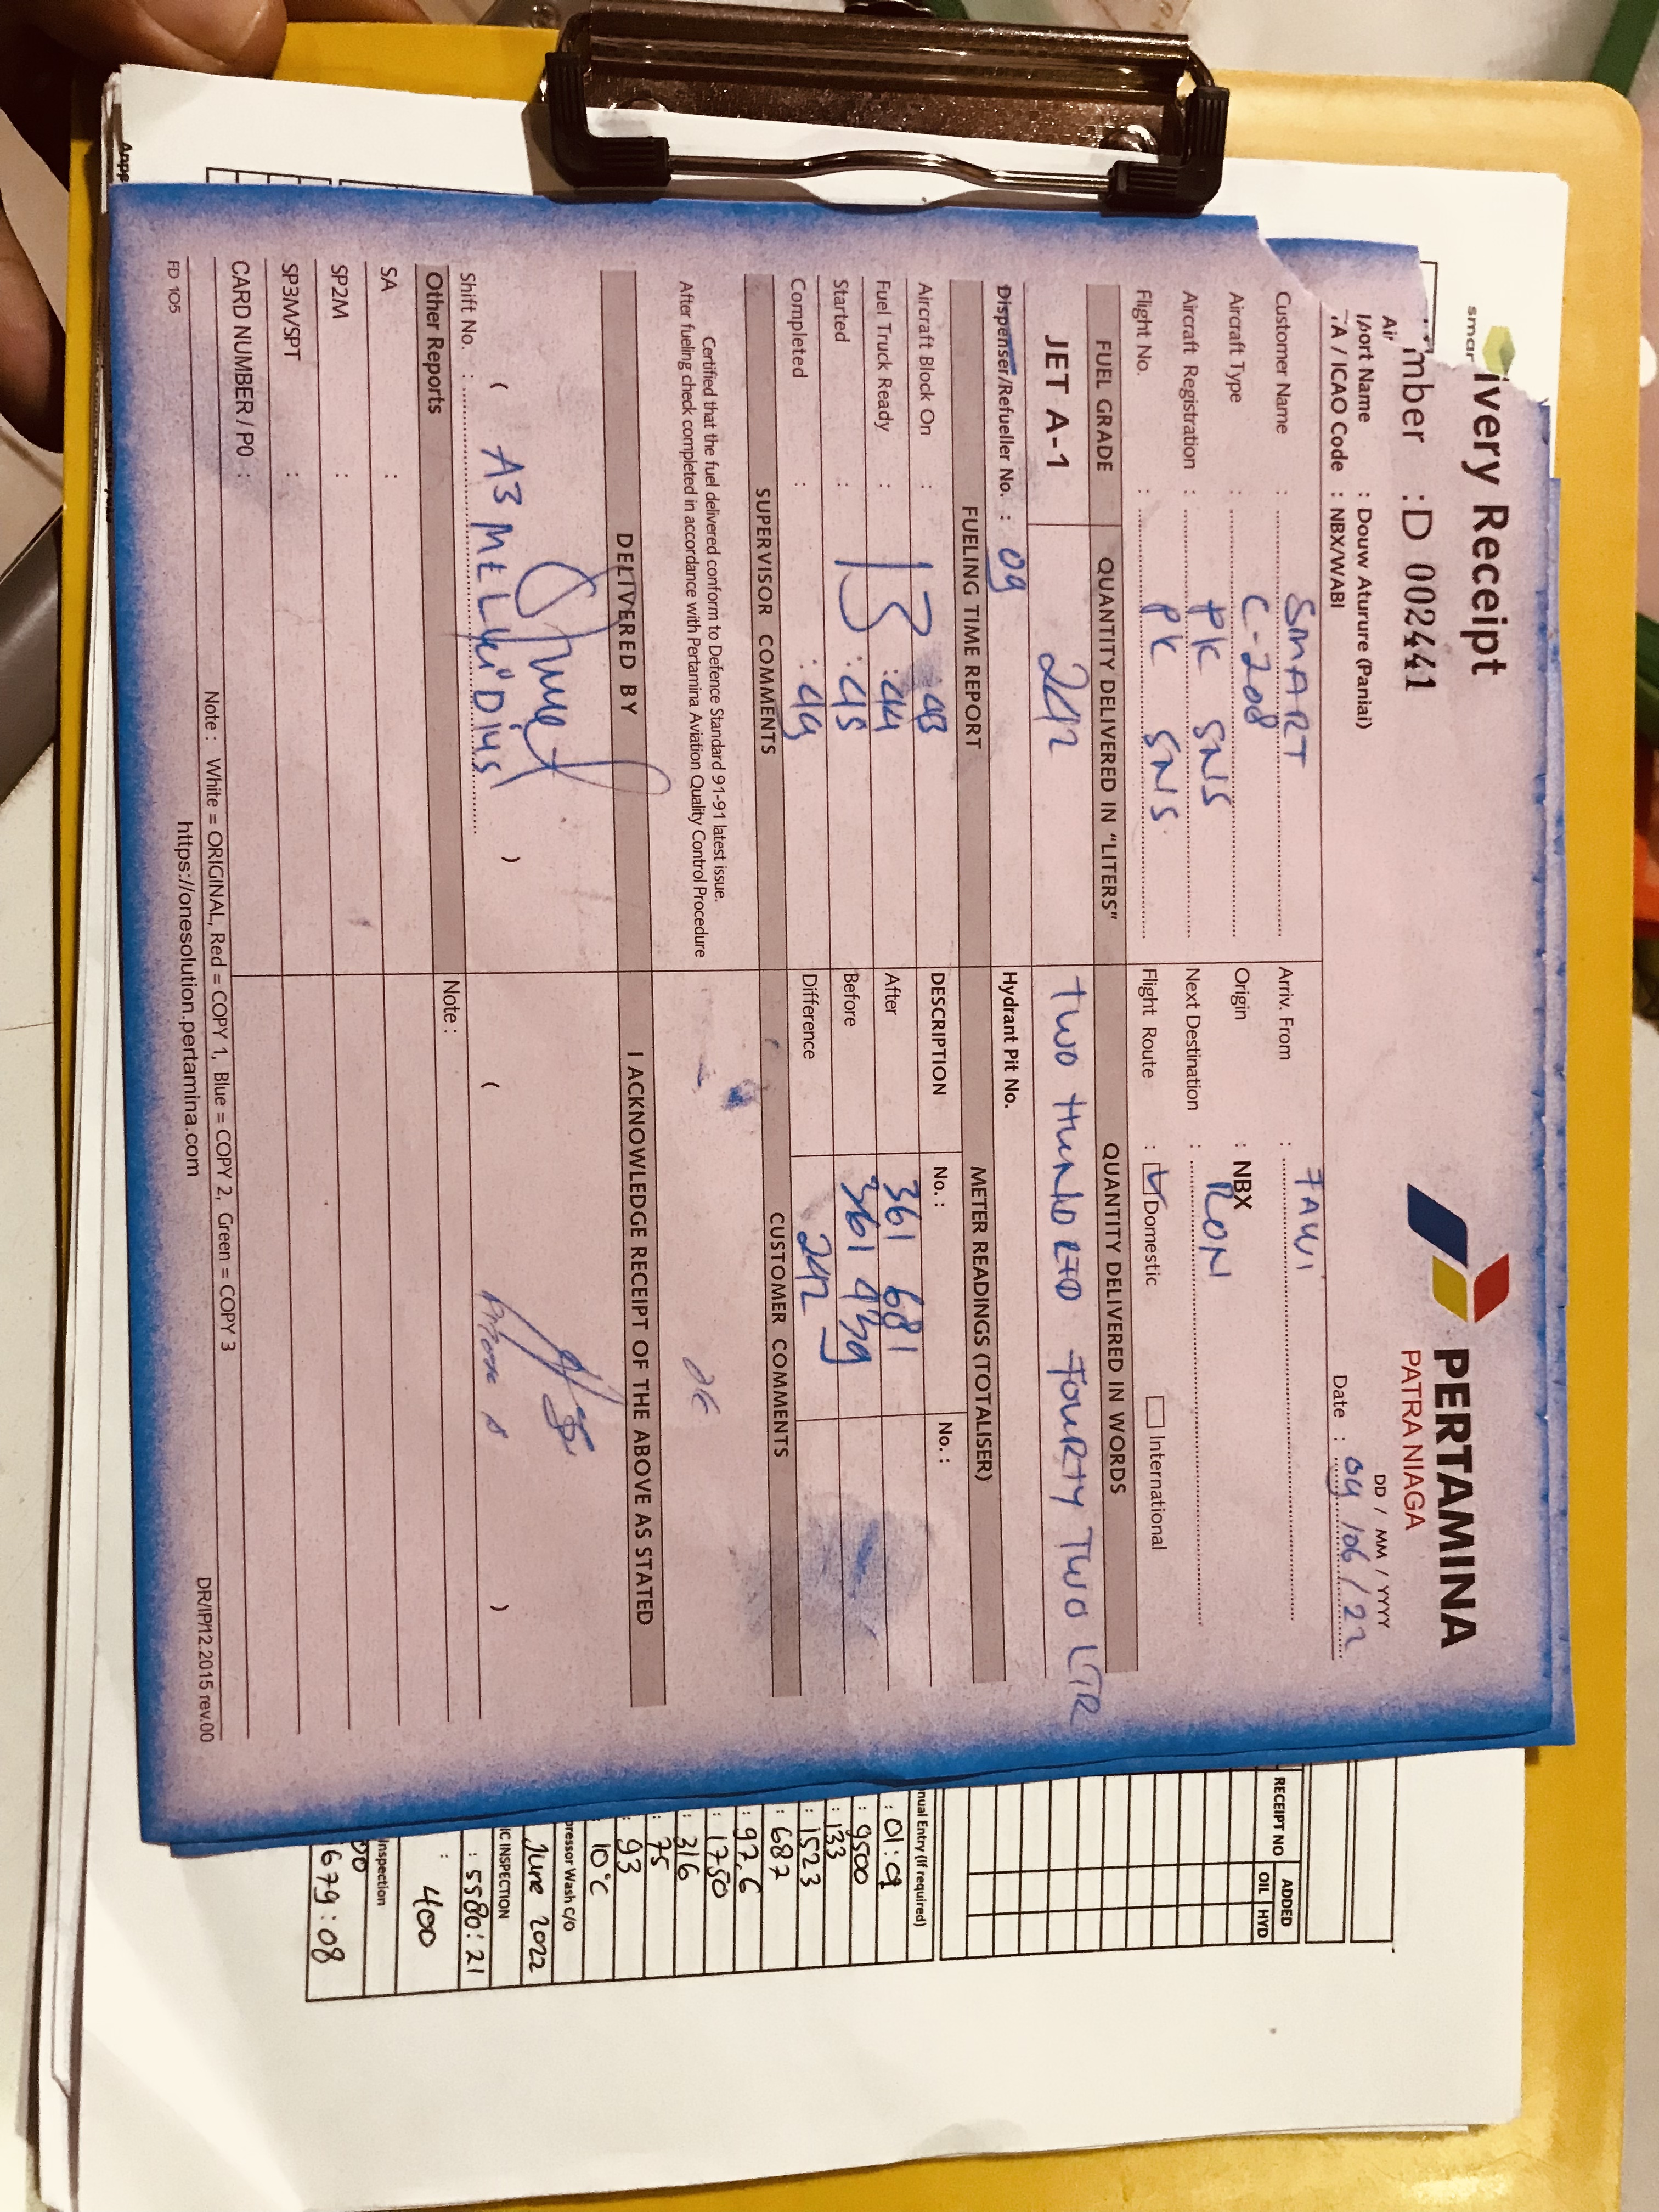 smar
ivery Receipt
PERTAMINA
PATRA NIAGA
mber : D 002441
DD / MM / YYYY
Date : 09/06/22
port Name : Douw Aturure (Paniai)
TA / ICAO Code : NBX/WABI
Customer Name : SMART
Arriv. From : FAWI
Aircraft Type : C-208
Origin : NBX
Aircraft Registration : PK SNS
Next Destination : RON
Flight No. : PK SNS
Flight Route : Domestic International
FUEL GRADE QUANTITY DELIVERED IN "LITERS" QUANTITY DELIVERED IN WORDS
JET A-1 242 TWO HUNDRED FOURTY TWO LTR
Dispenser/Refueller No. : 09 Hydrant Pit No.
FUELING TIME REPORT METER READINGS (TOTALISER)
Aircraft Block On : 13 :43 DESCRIPTION No. : No. :
Fuel Truck Ready : :44 After 361 681
Started : :45 Before 361 439
Completed : :49 Difference 242
SUPERVISOR COMMENTS CUSTOMER COMMENTS
Certified that the fuel delivered conform to Defence Standard 91-91 latest issue.
After fueling check completed in accordance with Pertamina Aviation Quality Control Procedure
DELIVERED BY I ACKNOWLEDGE RECEIPT OF THE ABOVE AS STATED
( ) ( )
Shift No. :
Other Reports Note :
SA :
SP2M :
SP3M/SPT :
CARD NUMBER / PO :
Note : White = ORIGINAL, Red = COPY 1, Blue = COPY 2, Green = COPY 3
FD 105 https://onesolution.pertamina.com DR/IP/12.2015 rev.00
RECEIPT NO ADDED
OIL HYD
nual Entry (If required)
: 01:09
: 9500
: 133
: 1523
: 687
: 97.6
: 1750
: 316
: 75
: 93
10°C
pressor Wash c/o
June 2022
IC INSPECTION
: 5580:21
: 400
Inspection
00
679:08